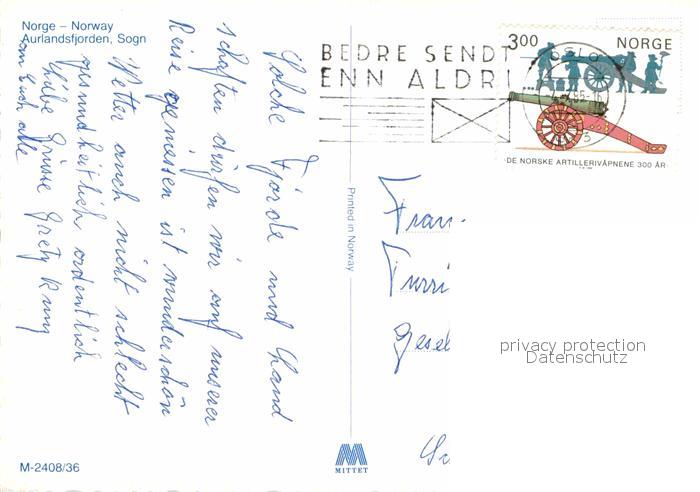 Norge – Norway
Aurlandsfjorden, Sogn
Solche Fjorde und Land
schaften dürfen wir auf unserer
Reise geniessen ist wunderschön
Wetter auch nicht schlecht
gesundheitlich ordentlich
Liebe Grüsse Grety
von Euch alle
M-2408/36
Printed in Norway
MITTET
BEDRE SENDT
ENN ALDRI
OSLO
300 NORGE
DE NORSKE ARTILLERIVÅPNENE 300 ÅR
Frau
Turri
Gesel
privacy protection
Datenschutz